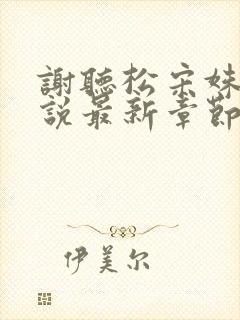 謝聽松宋妹
說最新章節
伊美尔